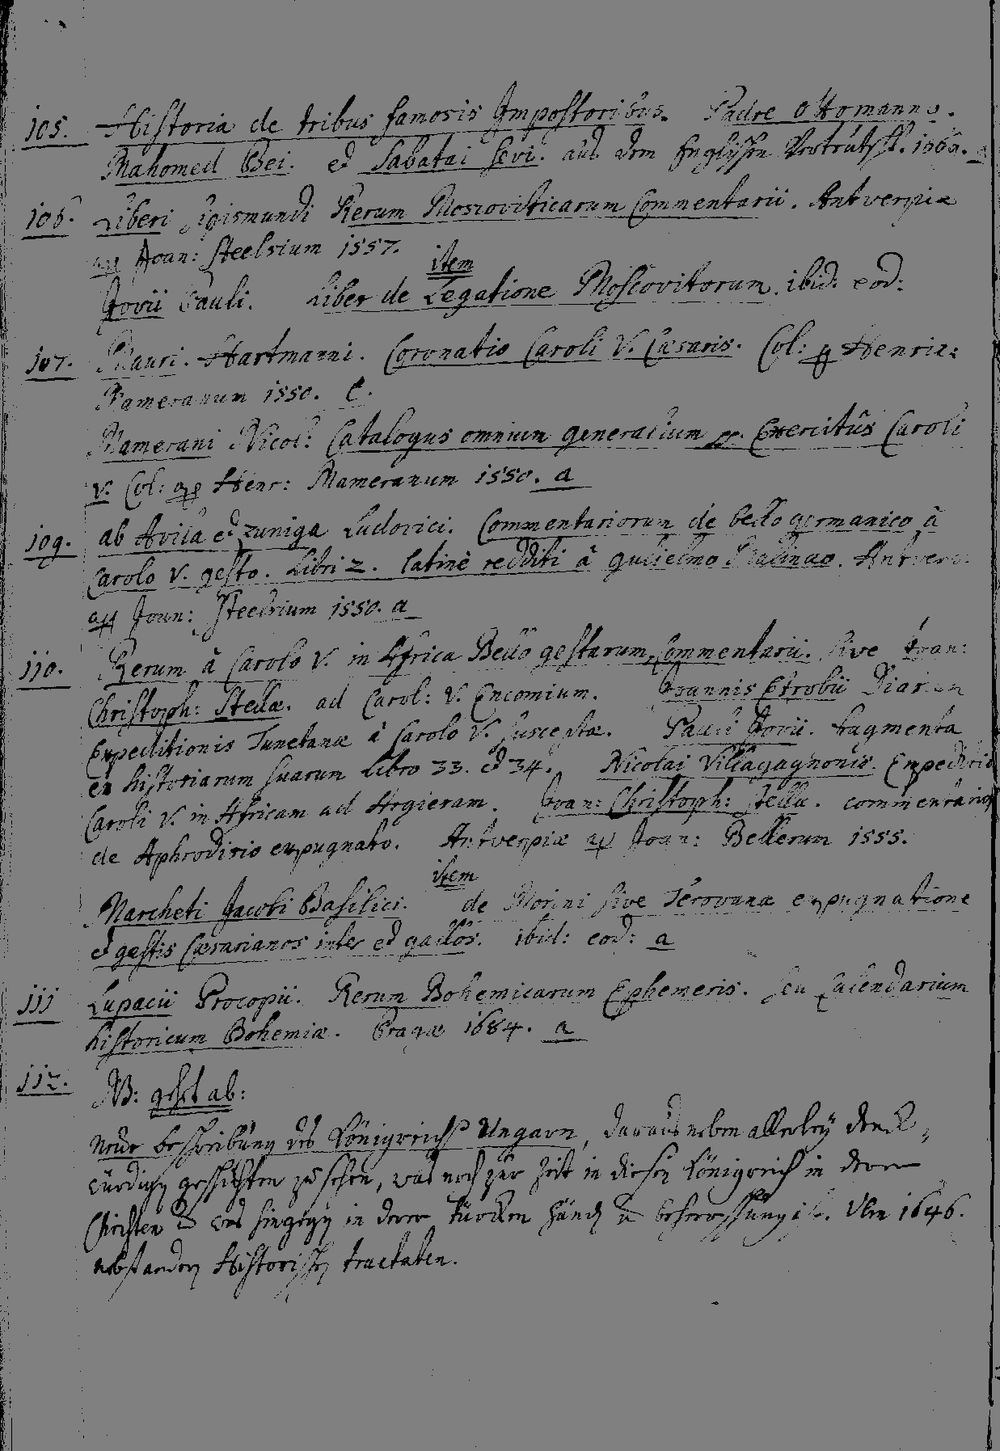 105. Historia de tribus famosis Impostoribus. Padre Ottomanno.
Mahomed Bei. ed Sabatai Sevi. aus dem Englischen 1669.
106. Liberi Sigismundi Rerum Moscoviticarum Commentarii. Antverpiæ
ap Joan: Steelsium 1557.
item
Jovii Pauli. Liber de Legatione Moscovitorum. ibid: eod:
107. Mauri. Hartmanni. Coronatio Caroli V. Cæsaris. Col: p Henric:
Mameranum 1550. C.
Mamerani Nicol: Catalogus omnium generalium pp. Exercitûs Caroli
V. Col: ap Henr: Mameranum 1550. a
109. ab Avila ed Zuniga Ludovici. Commentariorum de bello germanico â
Carolo V. gesto. Libri 2. Latinè redditi â gulielmo Malinæo. Antverp:
ap Joan: Steelsium 1550. a
110. Rerum â Carolo V. in Africa Bello gestarum, Commentarii. sive Joan:
Christoph: Stellæ. ad Carol: V. Encomium. Joannis Etrobii Diarium
Expeditionis Tunetanæ â Carolo V. susceptæ. Pauli Jovii. fragmenta
ex historiarum suarum libro 33. ed 34. Nicolai Villagagnonis. Expeditio
Caroli V. in Africam ad Argieram. Joan: Christoph: Stellæ. commentarius
de Aphrodisio expugnato. Antverpiæ ap Joan: Bellerum 1555.
item
Marcheti Jacobi Basilici. de Morini sive Terovanæ expugnatione
ed gestis Cæsarianos inter ed gallos. ibid: eod: a
111 Lupacii Procopii. Rerum Bohemicarum Ephemeris. seu Calendarium
historicum Bohemiæ. Pragæ 1684. a
112. NB: gehet ab:
Neue beschreibung des Königreichs Ungarn, daraus neben allerley denck=
würdigen geschichten zu sehen, was noch zur Zeit in diesen Königreich in derer
Christen und was hingegen in derer Türcken händ u beherrschung ist. Ulm 1646.
nebst andern Historischen tractaten.